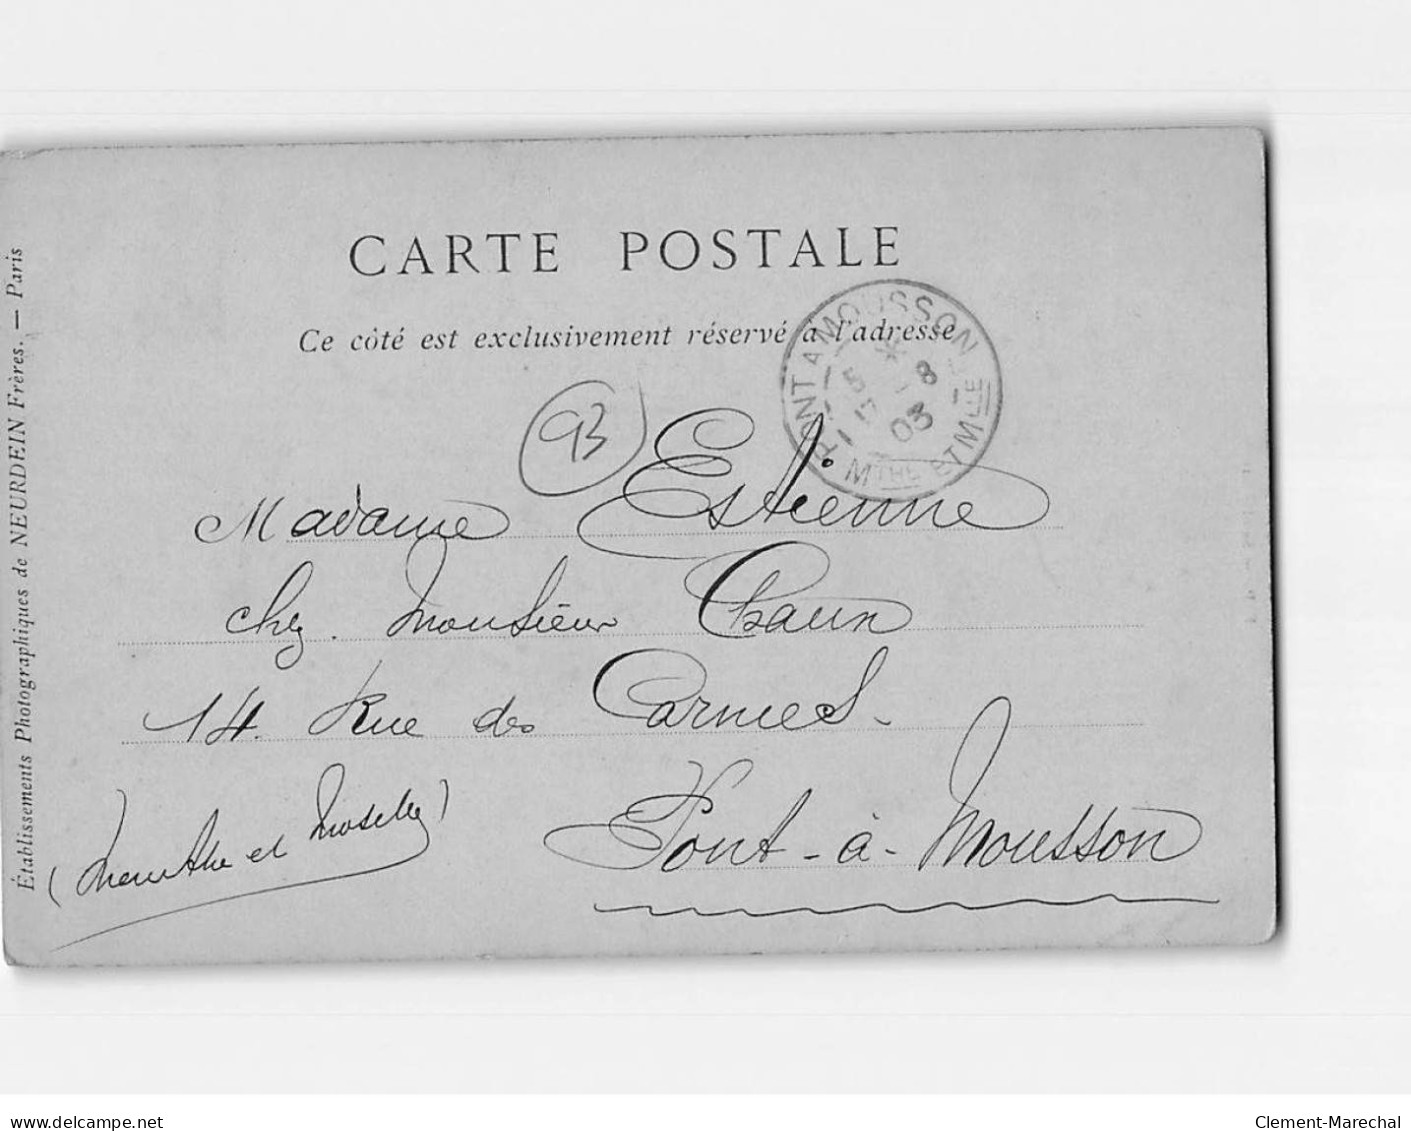 CARTE POSTALE
Ce côté est exclusivement réservé à l'adresse
PONT A MOUSSON
8
03
MTHE ET MLLE
93
Madame Estienne
chez Monsieur
14 Rue des Carmes.
Pont-à-Mousson
(Meurthe et Moselle)
Établissements Photographiques de NEURDEIN Frères. — Paris
delcampe.net
Clement-Marechal